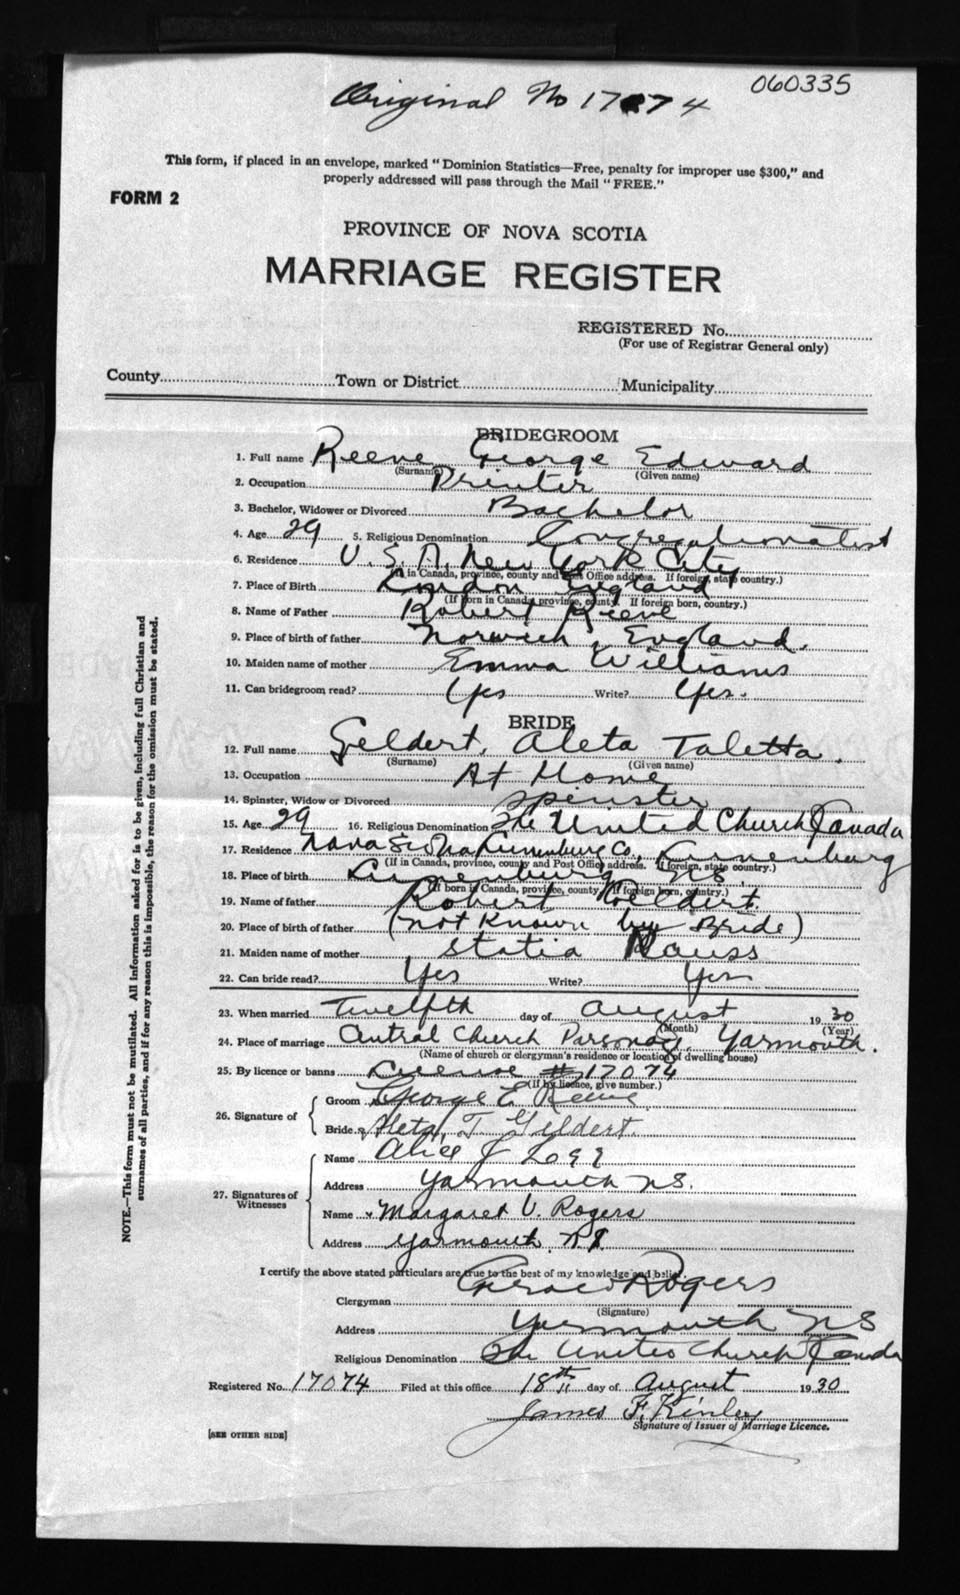 060335
Original No 17074
This form, if placed in an envelope, marked "Dominion Statistics—Free, penalty for improper use $300," and
properly addressed will pass through the Mail "FREE."
FORM 2
PROVINCE OF NOVA SCOTIA
MARRIAGE REGISTER
REGISTERED No.
(For use of Registrar General only)
County Town or District Municipality
BRIDEGROOM
1. Full name Reeve George Edward
(Surname) (Given name)
2. Occupation Printer
3. Bachelor, Widower or Divorced Bachelor
4. Age 29 5. Religious Denomination Congregationalist
6. Residence U.S.A. New York City
(If in Canada, province, county and Post Office address. If foreign, state country.)
7. Place of Birth London England
(If born in Canada, province, county. If foreign born, country.)
8. Name of Father Robert Reeve
9. Place of birth of father Norwich, England.
10. Maiden name of mother Emma Williams
11. Can bridegroom read? Yes Write? Yes.
BRIDE
12. Full name Geldert, Aleta Taletta.
(Surname) (Given name)
13. Occupation At Home
14. Spinster, Widow or Divorced Spinster
15. Age 29 16. Religious Denomination The United Church Canada
17. Residence Nova Scotia Lunenburg Co., Lunenburg
(If in Canada, province, county and Post Office address. If foreign, state country.)
18. Place of birth Lunenburg, N.S.
(If born in Canada, province, county. If foreign born, country.)
19. Name of father Robert Geldert.
20. Place of birth of father (not known by Bride)
21. Maiden name of mother Statia Nauss
22. Can bride read? Yes Write? Yes
23. When married Twelfth day of August 1930
(Month) (Year)
24. Place of marriage Central Church Parsonage, Yarmouth.
(Name of church or clergyman's residence or location of dwelling house)
25. By licence or banns License #17074
(If by licence, give number.)
26. Signature of Groom George E Reeve
Bride Aleta T Geldert.
27. Signatures of Witnesses
Name Alice J
Address Yarmouth N.S.
Name Margaret V. Rogers
Address Yarmouth. N.S.
I certify the above stated particulars are true to the best of my knowledge and belief.
Clergyman Rogers
(Signature)
Address Yarmouth N S
Religious Denomination The United Church Canada
Registered No. 17074 Filed at this office 18th day of August 1930
James F. Kinley
Signature of Issuer of Marriage Licence.
[SEE OTHER SIDE]
NOTE.—This form must not be mutilated. All information asked for is to be given, including full Christian and
surnames of all parties, and if for any reason this is impossible, the reason for the omission must be stated.